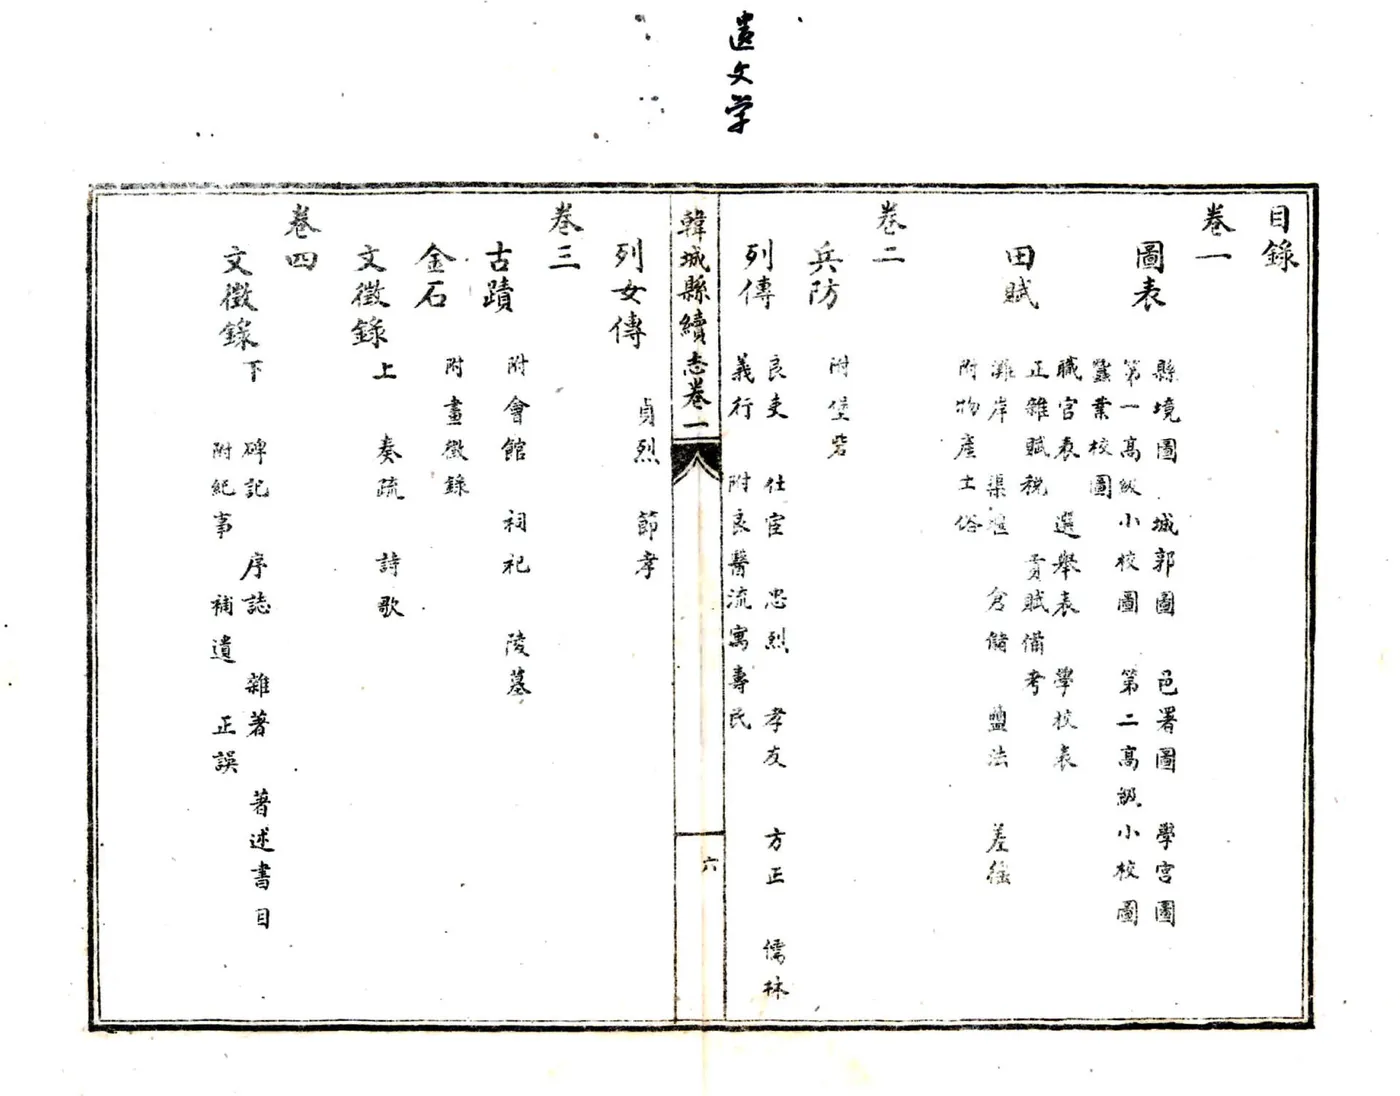 文学
目錄
卷一
圖表
縣境圖 城郭圖 邑署圖 學宮圖
第一高級小校圖 第二高級小校圖
蠶業校圖
職官表 選舉表 學校表
田賦
正雜賦稅 貢賦備考
灘岸 渠堰 倉儲 鹽法 差徭
附物產土俗
卷二
兵防 附堡砦
列傳
良吏 仕宦 忠烈 孝友 方正 儒林
義行 附良醫流寓壽民
韓城縣續志卷一 六
列女傳 貞烈 節孝
卷三
古蹟 附會館 祠祀 陵墓
金石 附畫徵錄
文徵錄上 奏疏 詩歌
卷四
文徵錄下
碑記 序誌 雜著 著述書目
附紀事 補遺 正誤